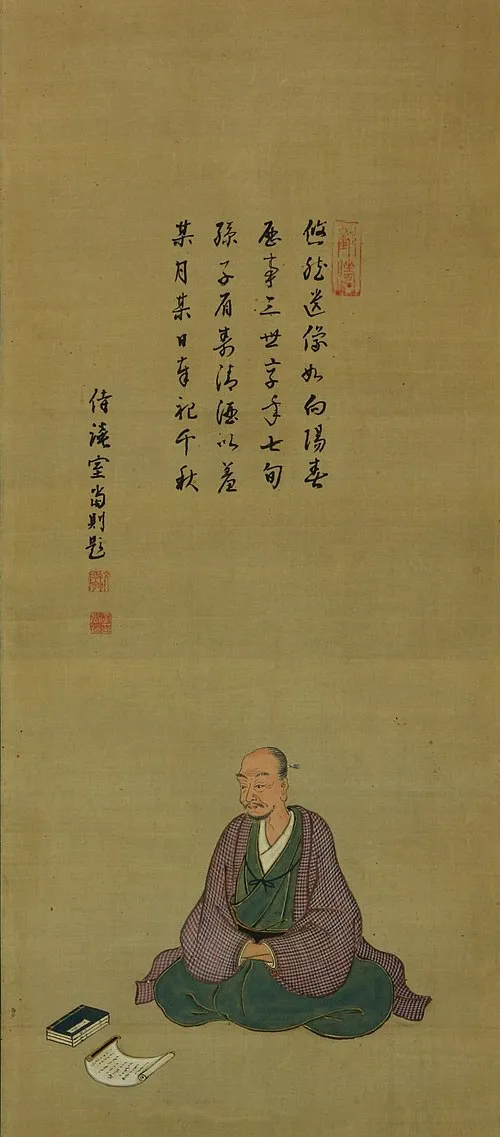 悠然遺像如向陽春
歷事三世享年七旬
孫子眉壽清酒以羞
某月某日奉祀千秋
侍讀室則題